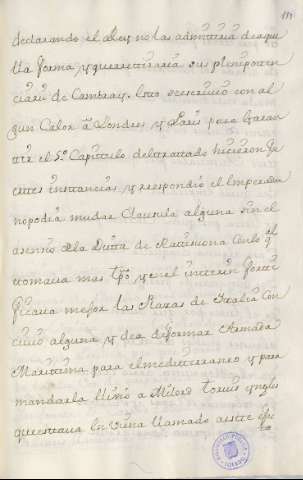 declarando el Rey no las admitiria de aqu
lla forma y que retiraria sus plenipoten
ciarios de Cambray. Esto se escrivió con al
gun Calor à Londres y Paris para Garan
tir el 5.º Capitulo del tratado hicieron fre
cuentes instancias y respondió el Emperador
no podia mudar Clausula alguna sin el
asenso de la Dieta de Ratisbona Con lo q.l
tomava mas tpô y en el interin fortifi
ficava mejor las Plazas de Italia Con
civio alguna y de a deformar Armada
Maritima para el mediterraneo y para
mandarla llamó a Milord Torvis yngles
que estava En viena llamado a este efe
to